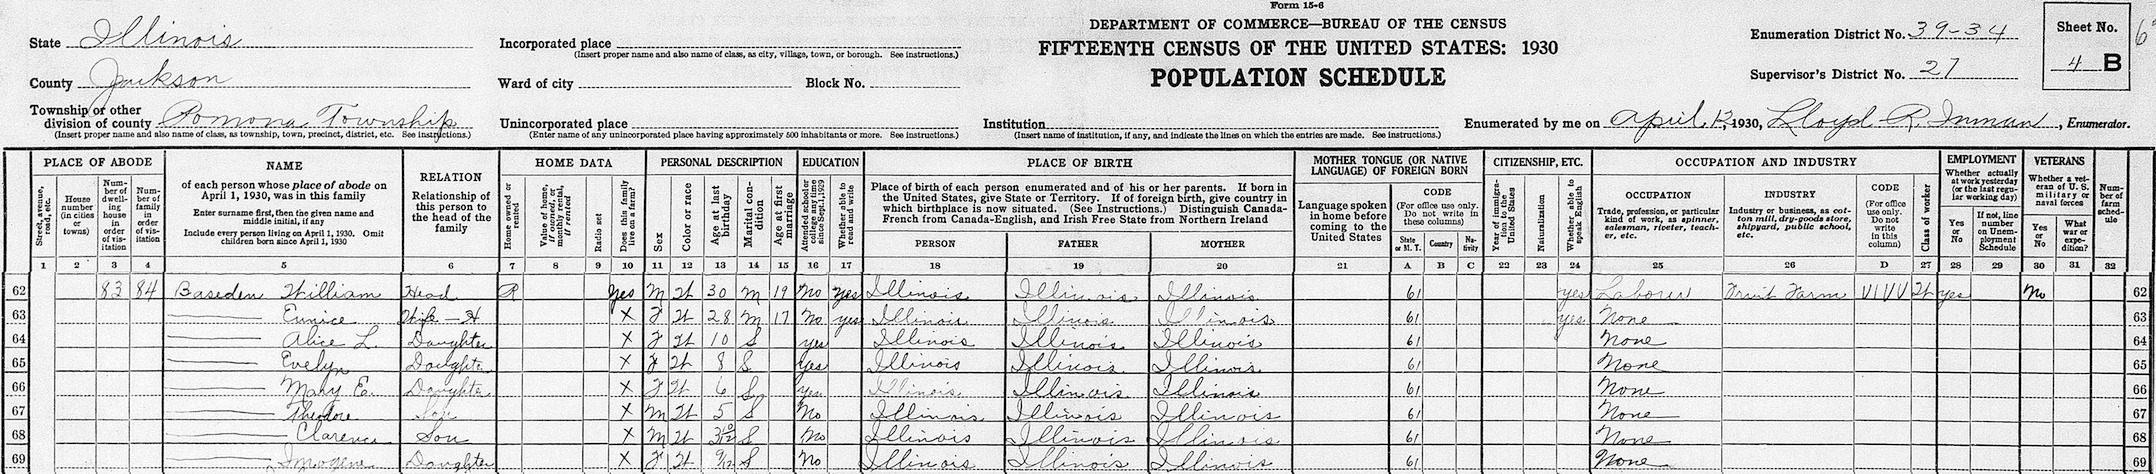 Form 15-6
DEPARTMENT OF COMMERCE—BUREAU OF THE CENSUS
FIFTEENTH CENSUS OF THE UNITED STATES: 1930
POPULATION SCHEDULE
State Illinois
County Jackson
Township or other division of county Pomona Township
(Insert proper name and also name of class, as township, town, precinct, district, etc. See instructions.)
Incorporated place
(Insert proper name and also name of class, as city, village, town, or borough. See instructions.)
Ward of city Block No.
Unincorporated place
(Enter name of any unincorporated place having approximately 500 inhabitants or more. See instructions.)
Institution
(Insert name of institution, if any, and indicate the lines on which the entries are made. See instructions.)
Enumeration District No. 39-34
Supervisor's District No. 27
Sheet No.
4 B
6
Enumerated by me on April 12, 1930, Lloyd R. Inman, Enumerator.
PLACE OF ABODE
Street, avenue, road, etc.
House number (in cities or towns)
Number of dwelling house in order of visitation
Number of family in order of visitation
NAME
of each person whose place of abode on April 1, 1930, was in this family
Enter surname first, then the given name and middle initial, if any
Include every person living on April 1, 1930. Omit children born since April 1, 1930
RELATION
Relationship of this person to the head of the family
HOME DATA
Home owned or rented
Value of home, if owned, or monthly rental, if rented
Radio set
Does this family live on a farm?
PERSONAL DESCRIPTION
Sex
Color or race
Age at last birthday
Marital condition
Age at first marriage
EDUCATION
Attended school or college any time since Sept. 1, 1929
Whether able to read and write
PLACE OF BIRTH
Place of birth of each person enumerated and of his or her parents. If born in the United States, give State or Territory. If of foreign birth, give country in which birthplace is now situated. (See Instructions.) Distinguish Canada-French from Canada-English, and Irish Free State from Northern Ireland
PERSON FATHER MOTHER
MOTHER TONGUE (OR NATIVE LANGUAGE) OF FOREIGN BORN
Language spoken in home before coming to the United States
CODE
(For office use only. Do not write in these columns)
State or M. T. Country Nativity
CITIZENSHIP, ETC.
Year of immigration to the United States
Naturalization
Whether able to speak English
OCCUPATION AND INDUSTRY
OCCUPATION
Trade, profession, or particular kind of work, as spinner, salesman, riveter, teacher, etc.
INDUSTRY
Industry or business, as cotton mill, dry-goods store, shipyard, public school, etc.
CODE
(For office use only. Do not write in this column)
Class of worker
EMPLOYMENT
Whether actually at work yesterday (or the last regular working day)
Yes or No
If not, line number on Unemployment Schedule
VETERANS
Whether a veteran of U. S. military or naval forces
Yes or No
What war or expedition?
Number of farm schedule
1 2 3 4 5 6 7 8 9 10 11 12 13 14 15 16 17 18 19 20 21 A B C 22 23 24 25 26 D 27 28 29 30 31 32
62 83 84 Baseden William Head R Yes M W 30 M 19 No Yes Illinois Illinois Illinois 61 yes Laborer Fruit Farm VIVV W yes No 62
63 Eunice Wife-H X F W 28 M 17 No yes Illinois Illinois Illinois 61 yes None 63
64 Alice L. Daughter X F W 10 S yes Illinois Illinois Illinois 61 None 64
65 Evelyn Daughter X F W 8 S yes Illinois Illinois Illinois 61 None 65
66 Mary E. Daughter X F W 6 S yes Illinois Illinois Illinois 61 None 66
67 Theodore Son X M W 5 S No Illinois Illinois Illinois 61 None 67
68 Clarence Son X M W S No Illinois Illinois Illinois 61 None 68
69 Imogene Daughter X F W 9/12 S No Illinois Illinois Illinois 61 None 69